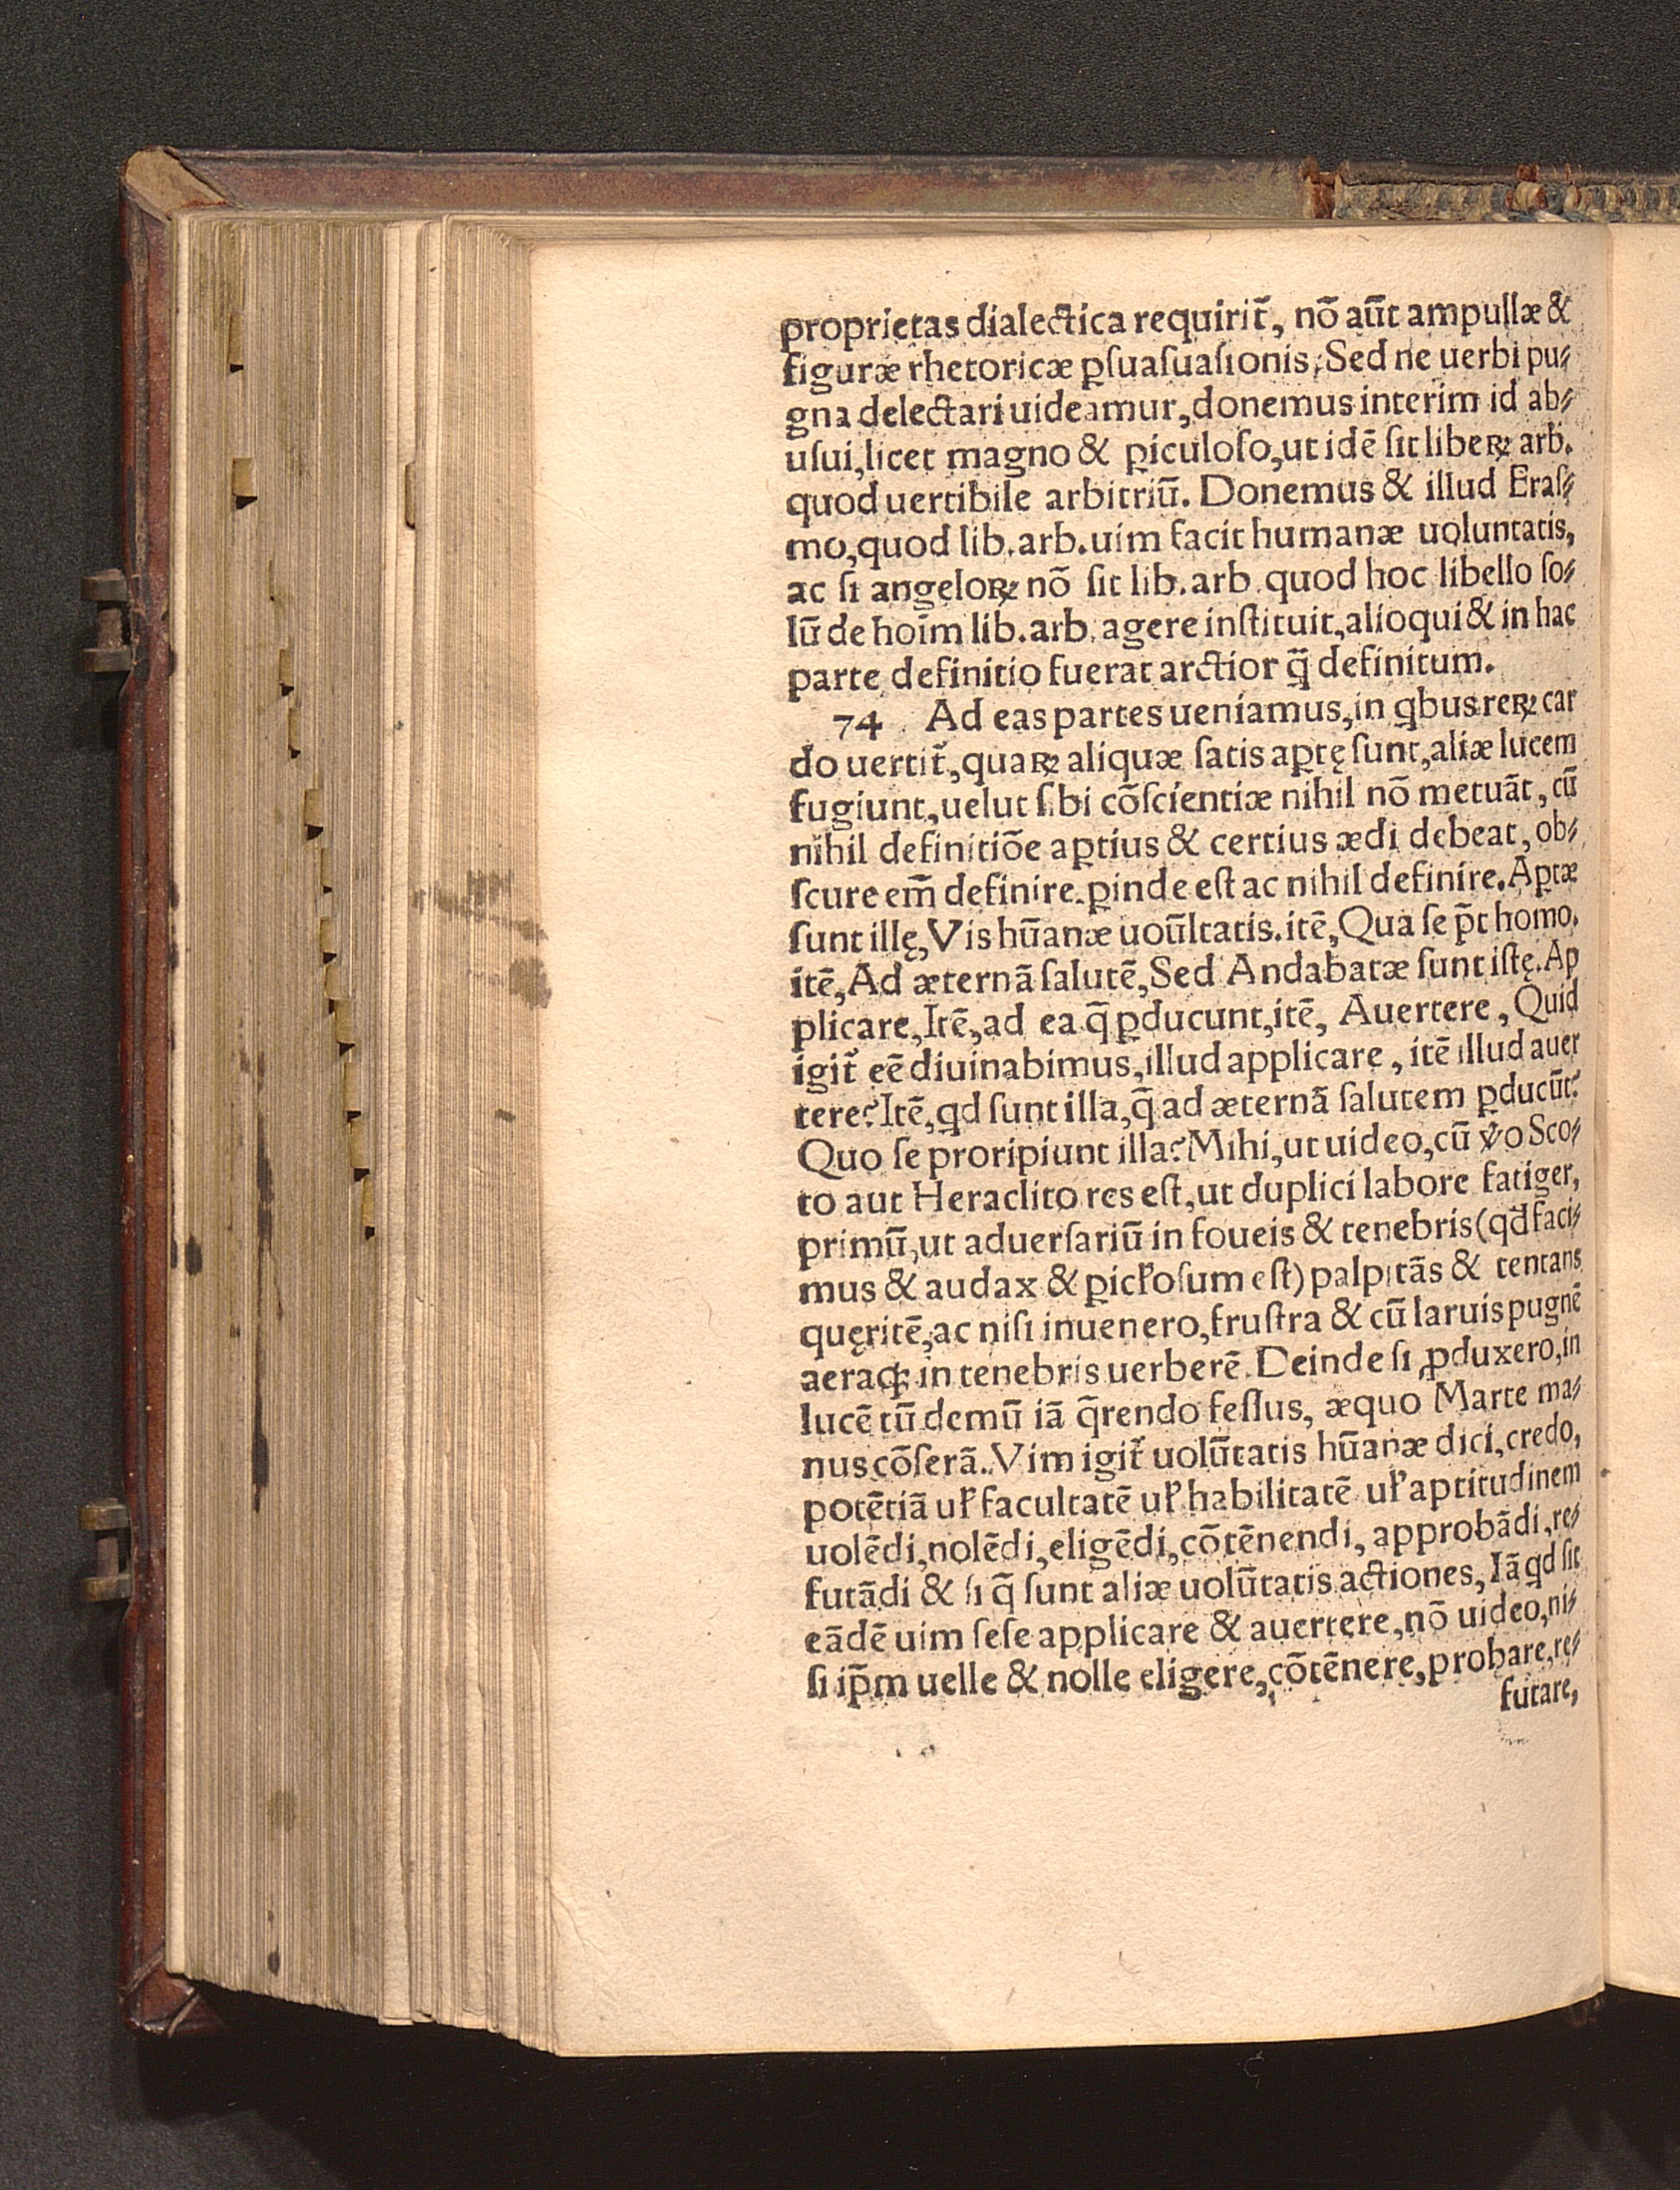 proprietas dialectica requirit᷑, nō aūt ampullæ &
figuræ rhetoricæ ꝑsuasuasionis, Sed ne uerbi pu⸗
gna delectari uideamur, donemus interim id ab⸗
usui, licet magno & ꝑiculoso, ut idē sit libeꝝ arb.
quod uertibile arbitriū. Donemus & illud Eras⸗
mo, quod lib. arb. uim facit humanæ uoluntatis,
ac si angeloꝝ nō sit lib. arb. quod hoc libello so⸗
lū de hoīm lib. arb. agere instituit, alioqui & in hac
parte definitio fuerat arctior q̄̃ definitum.
74 Ad eas partes ueniamus, in qbus reꝝ car
do uertit᷑, quaꝝ aliquæ satis aꝑtę sunt, aliæ lucem
fugiunt, uelut sibi cōscientiæ nihil nō metuāt, cū
nihil definitiōe aꝑtius & certius ædi debeat, ob⸗
scure em̄ definire ꝑinde est ac nihil definire. Aꝑtæ
sunt illę, Vis hūanæ uoūltatis. itē, Qua se p̄t homo.
itē, Ad æternā salutē, Sed Andabatæ sunt istę. Ap
plicare, Itē, ad ea q̄ ꝑducunt, itē, Auertere, Quid
igit᷑ eē diuinabimus, illud applicare, itē illud auer
tere? Itē, qd sunt illa, q̄ ad æternā salutem ꝑducūt?
Quo se proripiunt illa? Mihi, ut uideo, cū v̓o Sco⸗
to aut Heraclito res est, ut duplici labore fatiger,
primū, ut aduersariū in foueis & tenebris (qđ faci⸗
mus & audax & ꝑicło̵sum est) palpitās & tentans
quęritē, ac nisi inuenero, frustra & cū laruis pugnē
aeraꝙ in tenebris uerberē. Deinde si ꝓduxero, in
lucē tū demū iā q̄rendo fessus, æquo Marte ma⸗
nus cōserā. Vim igit᷑ uolūtatis hūanæ dici, credo,
potētiā uł facultatē uł habilitatē uł aptitudinem
uolēdi, nolēdi, eligēdi, cōtēnendi, approbādi, re⸗
futādi & si q̄ sunt aliæ uolūtatis actiones, Iā qd sit
eādē uim sese applicare & auertere, nō uideo, ni⸗
si ip̄m uelle & nolle eligere, cōtēnere, probare, re⸗
futare,